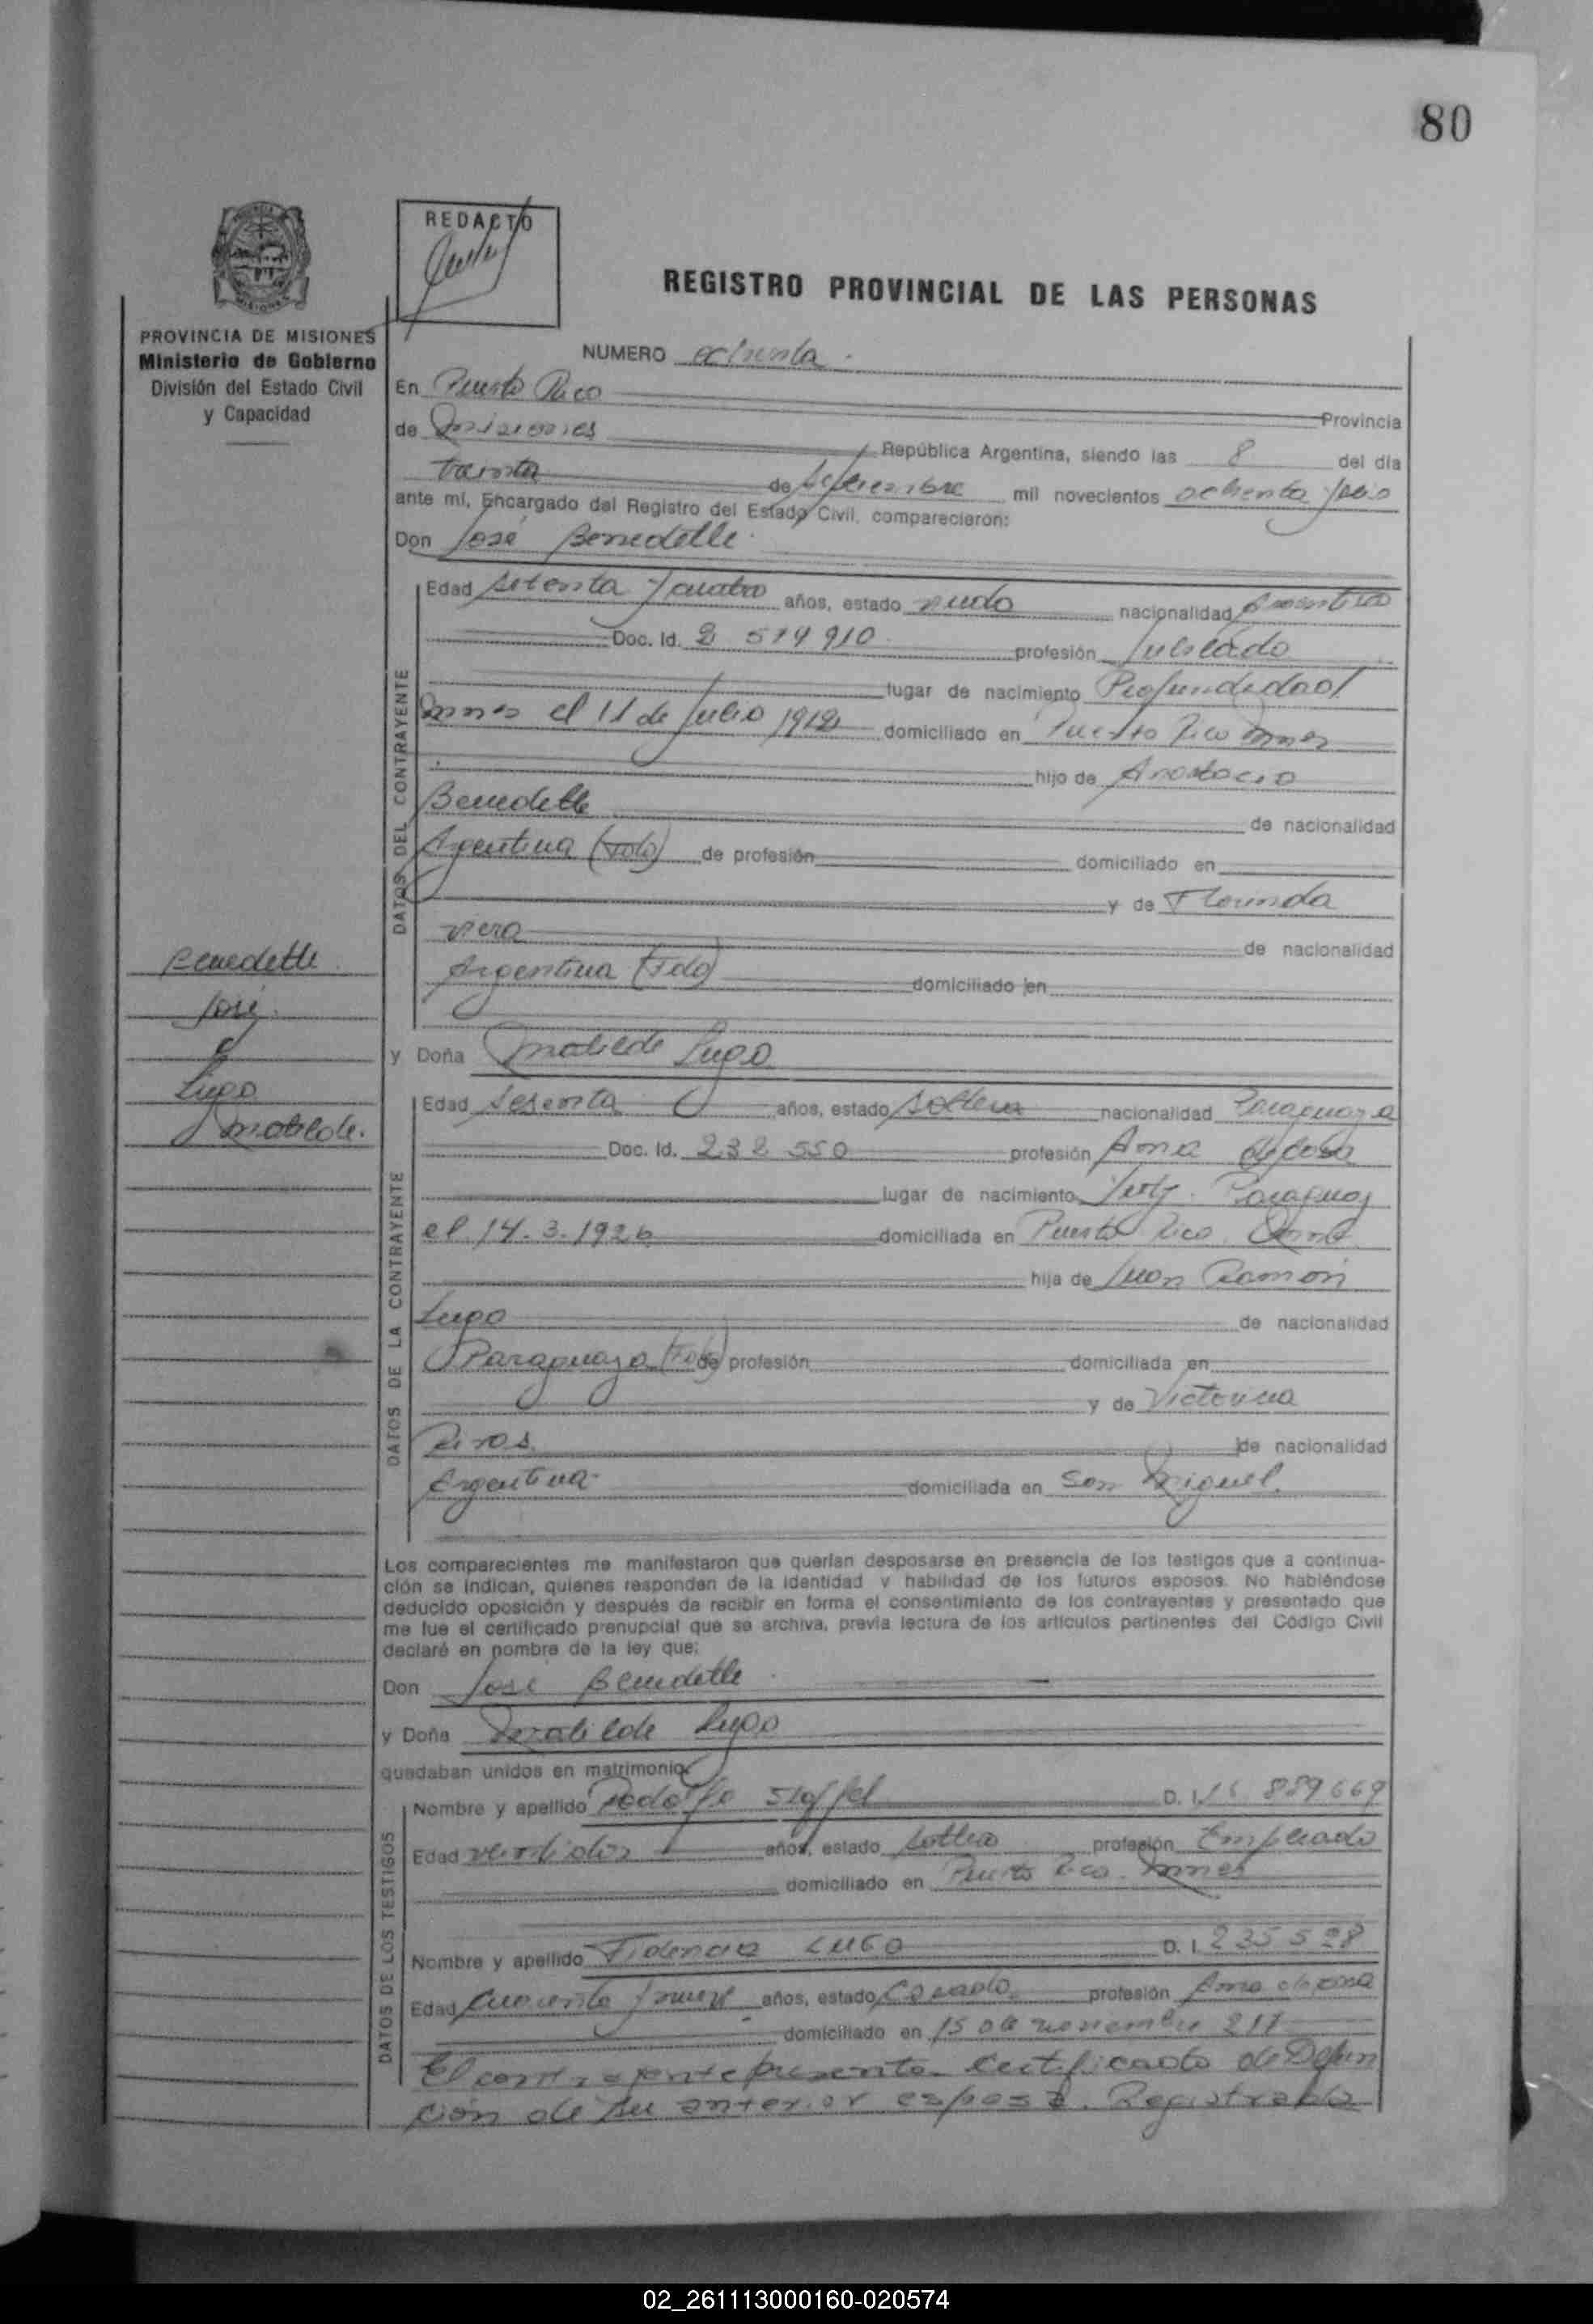 80
REDACTO
REGISTRO PROVINCIAL DE LAS PERSONAS
PROVINCIA DE MISIONES
Ministerio de Gobierno
División del Estado Civil
y Capacidad
NUMERO ochenta.
En Puerto Rico Provincia
de Misiones República Argentina, siendo las 8 del día
treinta de Septiembre mil novecientos ochenta y seis
ante mí, Encargado del Registro del Estado Civil, comparecieron:
Don José Benedette.
DATOS DEL CONTRAYENTE
Edad setenta y cuatro años, estado viudo nacionalidad Argentina
Doc. Id. 2 519 910 profesión Jubilado
lugar de nacimiento Profundidad
Mnes el 11 de Julio 1912 domiciliado en Puerto Rico Mnes
hijo de Anastacio
Benedette de nacionalidad
Argentina (Fdo) de profesión domiciliado en
y de Florinda
Viera de nacionalidad
Argentina (Fda) domiciliado en
Benedette
José
y
Lugo
Matilde.
y Doña Matilde Lugo
DATOS DE LA CONTRAYENTE
Edad Sesenta años, estado soltera nacionalidad Paraguaya
Doc. Id. 232 550 profesión Ama de casa
lugar de nacimiento Yuty. Paraguay
el 14.3.1926 domiciliada en Puerto Rico. Mnes
hija de Juan Ramón
Lugo de nacionalidad
Paraguaya (Fdo) de profesión domiciliada en
y de Victorina
de nacionalidad
Argentina domiciliada en San Miguel.
Los comparecientes me manifestaron que querían desposarse en presencia de los testigos que a continua-
ción se indican, quienes responden de la identidad y habilidad de los futuros esposos. No habiéndose
deducido oposición y después de recibir en forma el consentimiento de los contrayentes y presentado que
me fue el certificado prenupcial que se archiva, previa lectura de los artículos pertinentes del Código Civil
declaré en nombre de la ley que:
Don José Benedette.
y Doña Matilde Lugo
quedaban unidos en matrimonio
DATOS DE LOS TESTIGOS
Nombre y apellido Rodolfo Stoffel D. I. 16 889669
Edad veintidos años, estado soltero profesión Empleado
domiciliado en Puerto Rico. Mnes
Nombre y apellido Fidencia LUGO D. I. 235528
Edad Cuarenta y nueve años, estado Casada profesión Ama de casa
domiciliado en 15 de noviembre 211
El contrayente presenta Certificado de Defun
ción de su anterior esposa. Registrada
02_261113000160-020574